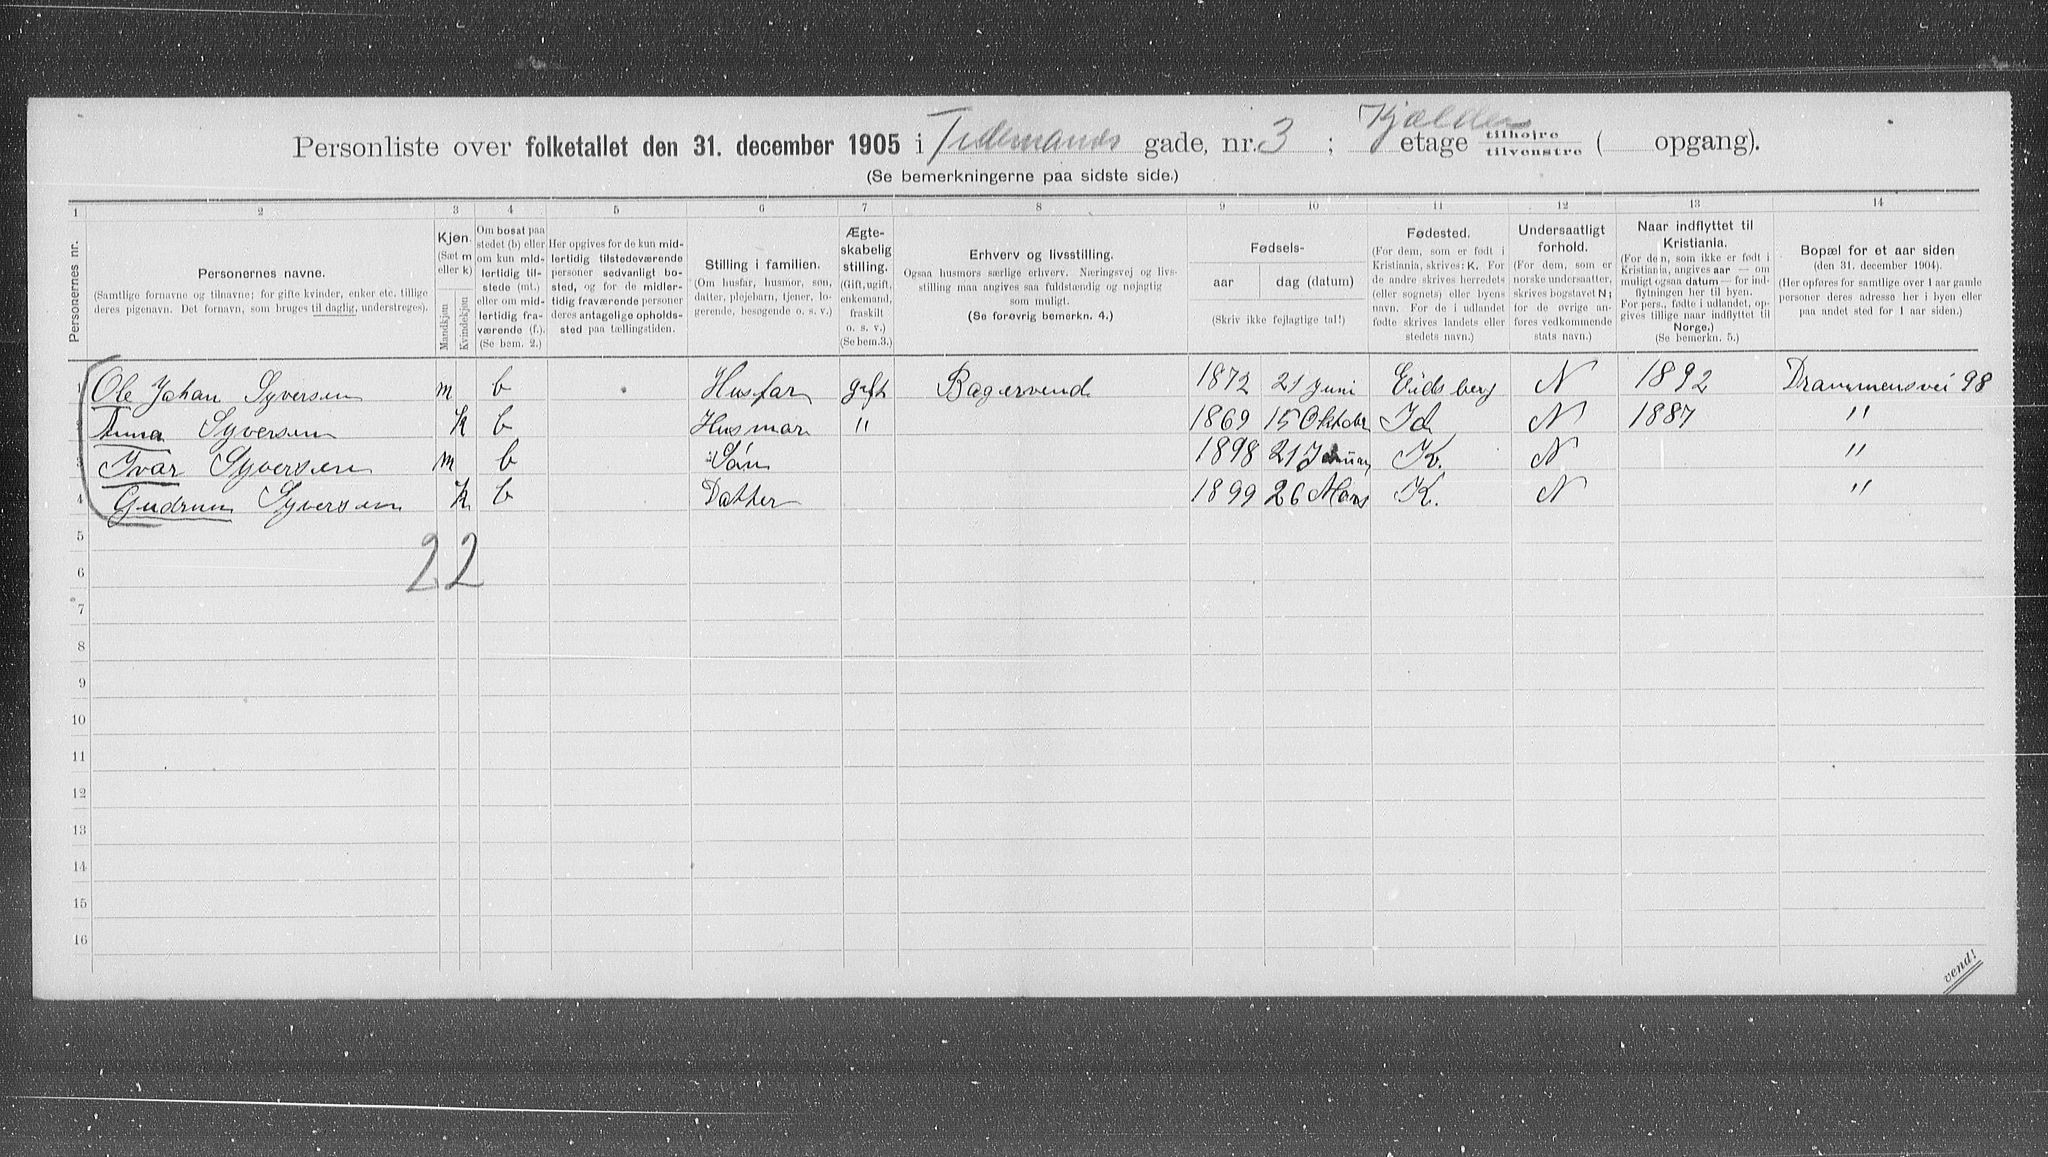 Personliste over folketallet den 31. december 1905 i Tidemands gade, nr. 3 ; Kjælder etage tilhøjre tilvenstre ( opgang).
(Se bemerkningerne paa sidste side.)
1 2 3 4 5 6 7 8 9 10 11 12 13 14
Personernes nr.
Personernes navne.
(Samtlige fornavne og tilnavne; for gifte kvinder, enker etc. tillige deres pigenavn. Det fornavn, som bruges til daglig, understreges).
Kjøn.
(Sæt m eller k)
Mandkjøn
Kvindekjøn
Om bosat paa stedet (b) eller om kun midlertidig tilstede (mt.) eller om midlertidig fraværende (f.).
(Se bem. 2.)
Her opgives for de kun midlertidig tilstedeværende personer sedvanligt bosted, og for de midlertidig fraværende personer deres antagelige opholdssted paa tællingstiden.
Stilling i familien.
(Om husfar, husmor, søn, datter, plejebarn, tjener, logerende, besøgende o. s. v.)
Ægteskabelig stilling.
(Gift, ugift, enkemand, fraskilt o. s. v.)
(Se bem. 3.)
Erhverv og livsstilling.
Ogsaa husmors særlige erhverv. Næringsvej og livsstilling maa angives saa fuldstændig og nøjagtig som muligt.
(Se forøvrig bemerkn. 4.)
Fødsels-
aar dag (datum)
(Skriv ikke fejlagtige tal!)
Fødested.
(For dem, som er født i Kristiania, skrives: K. For de andre skrives herredets (eller sognets) eller byens navn. For de i udlandet fødte skrives landets eller stedets navn.)
Undersaatligt forhold.
(For dem, som er norske undersaatter, skrives bogstavet N; for de øvrige anføres vedkommende stats navn.)
Naar indflyttet til Kristiania.
(For dem, som ikke er født i Kristiania, angives aar — om muligt ogsaa datum — for indflytningen her til byen. For pers., fødte i udlandet, opgives tillige naar indflyttet til Norge.)
(Se bemerkn. 5.)
Bopæl for et aar siden
(den 31. december 1904).
(Her opføres for samtlige over 1 aar gamle personer deres adresse her i byen eller paa andet sted for 1 aar siden.)
1 Ole Johan Syversen m b Husfar gift Bagersvend 1872 21 Juni Eidsberg N 1892 Drammensvei 98
2 Anna Syversen k b Husmor " 1869 15 Oktober Id N 1887 "
3 Ivar Syversen m b Søn 1898 21 Januar K. N "
4 Gudrun Syversen k b Datter 1899 26 Mars K. N "
5
2 2
6
7
8
9
10
11
12
13
14
15
16
vend!